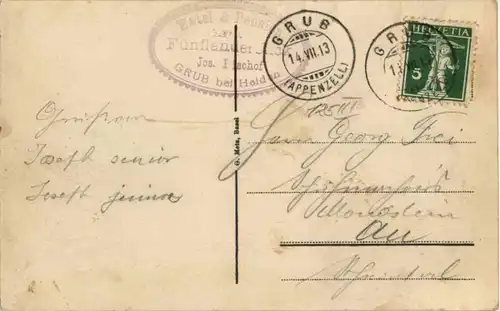 Hotel & Pension
Fünfländer
Jos. Bischof
GRUB bei Heiden
GRUB
14.VII.13
(APPENZELL)
GRUB
HELVETIA
5
G. Metz, Basel
Joseph senior
Joseph junior
Herrn Georg Frei
Monstein
Au
Rheintal